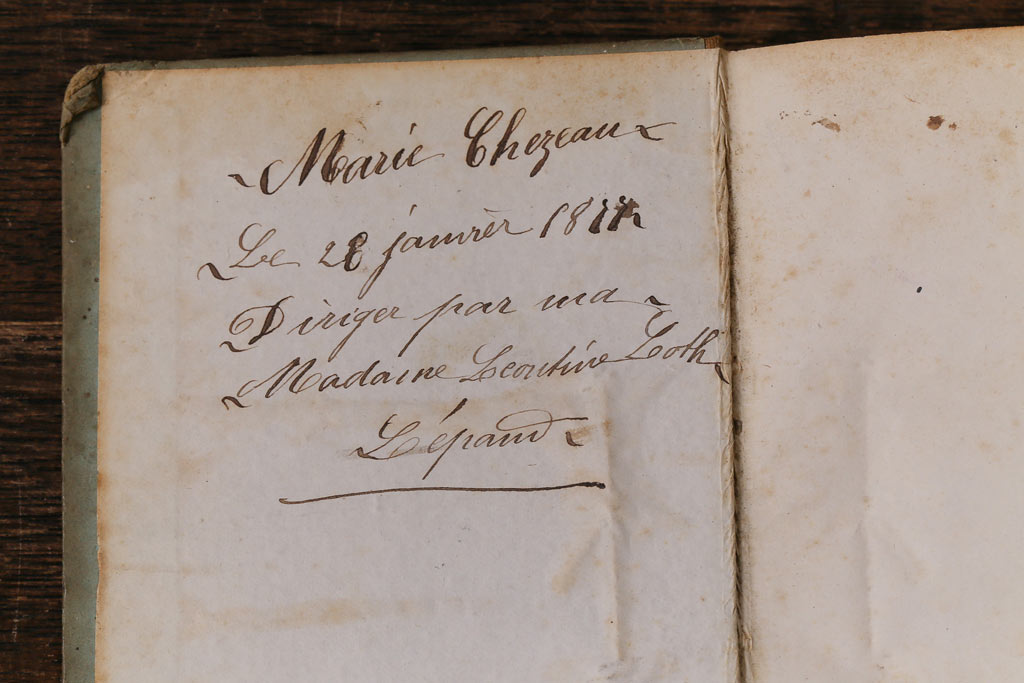 Marie Chezeau
Le 28 janvier 1877
Diriger par ma
Madame Leontine Loth
Lépaud